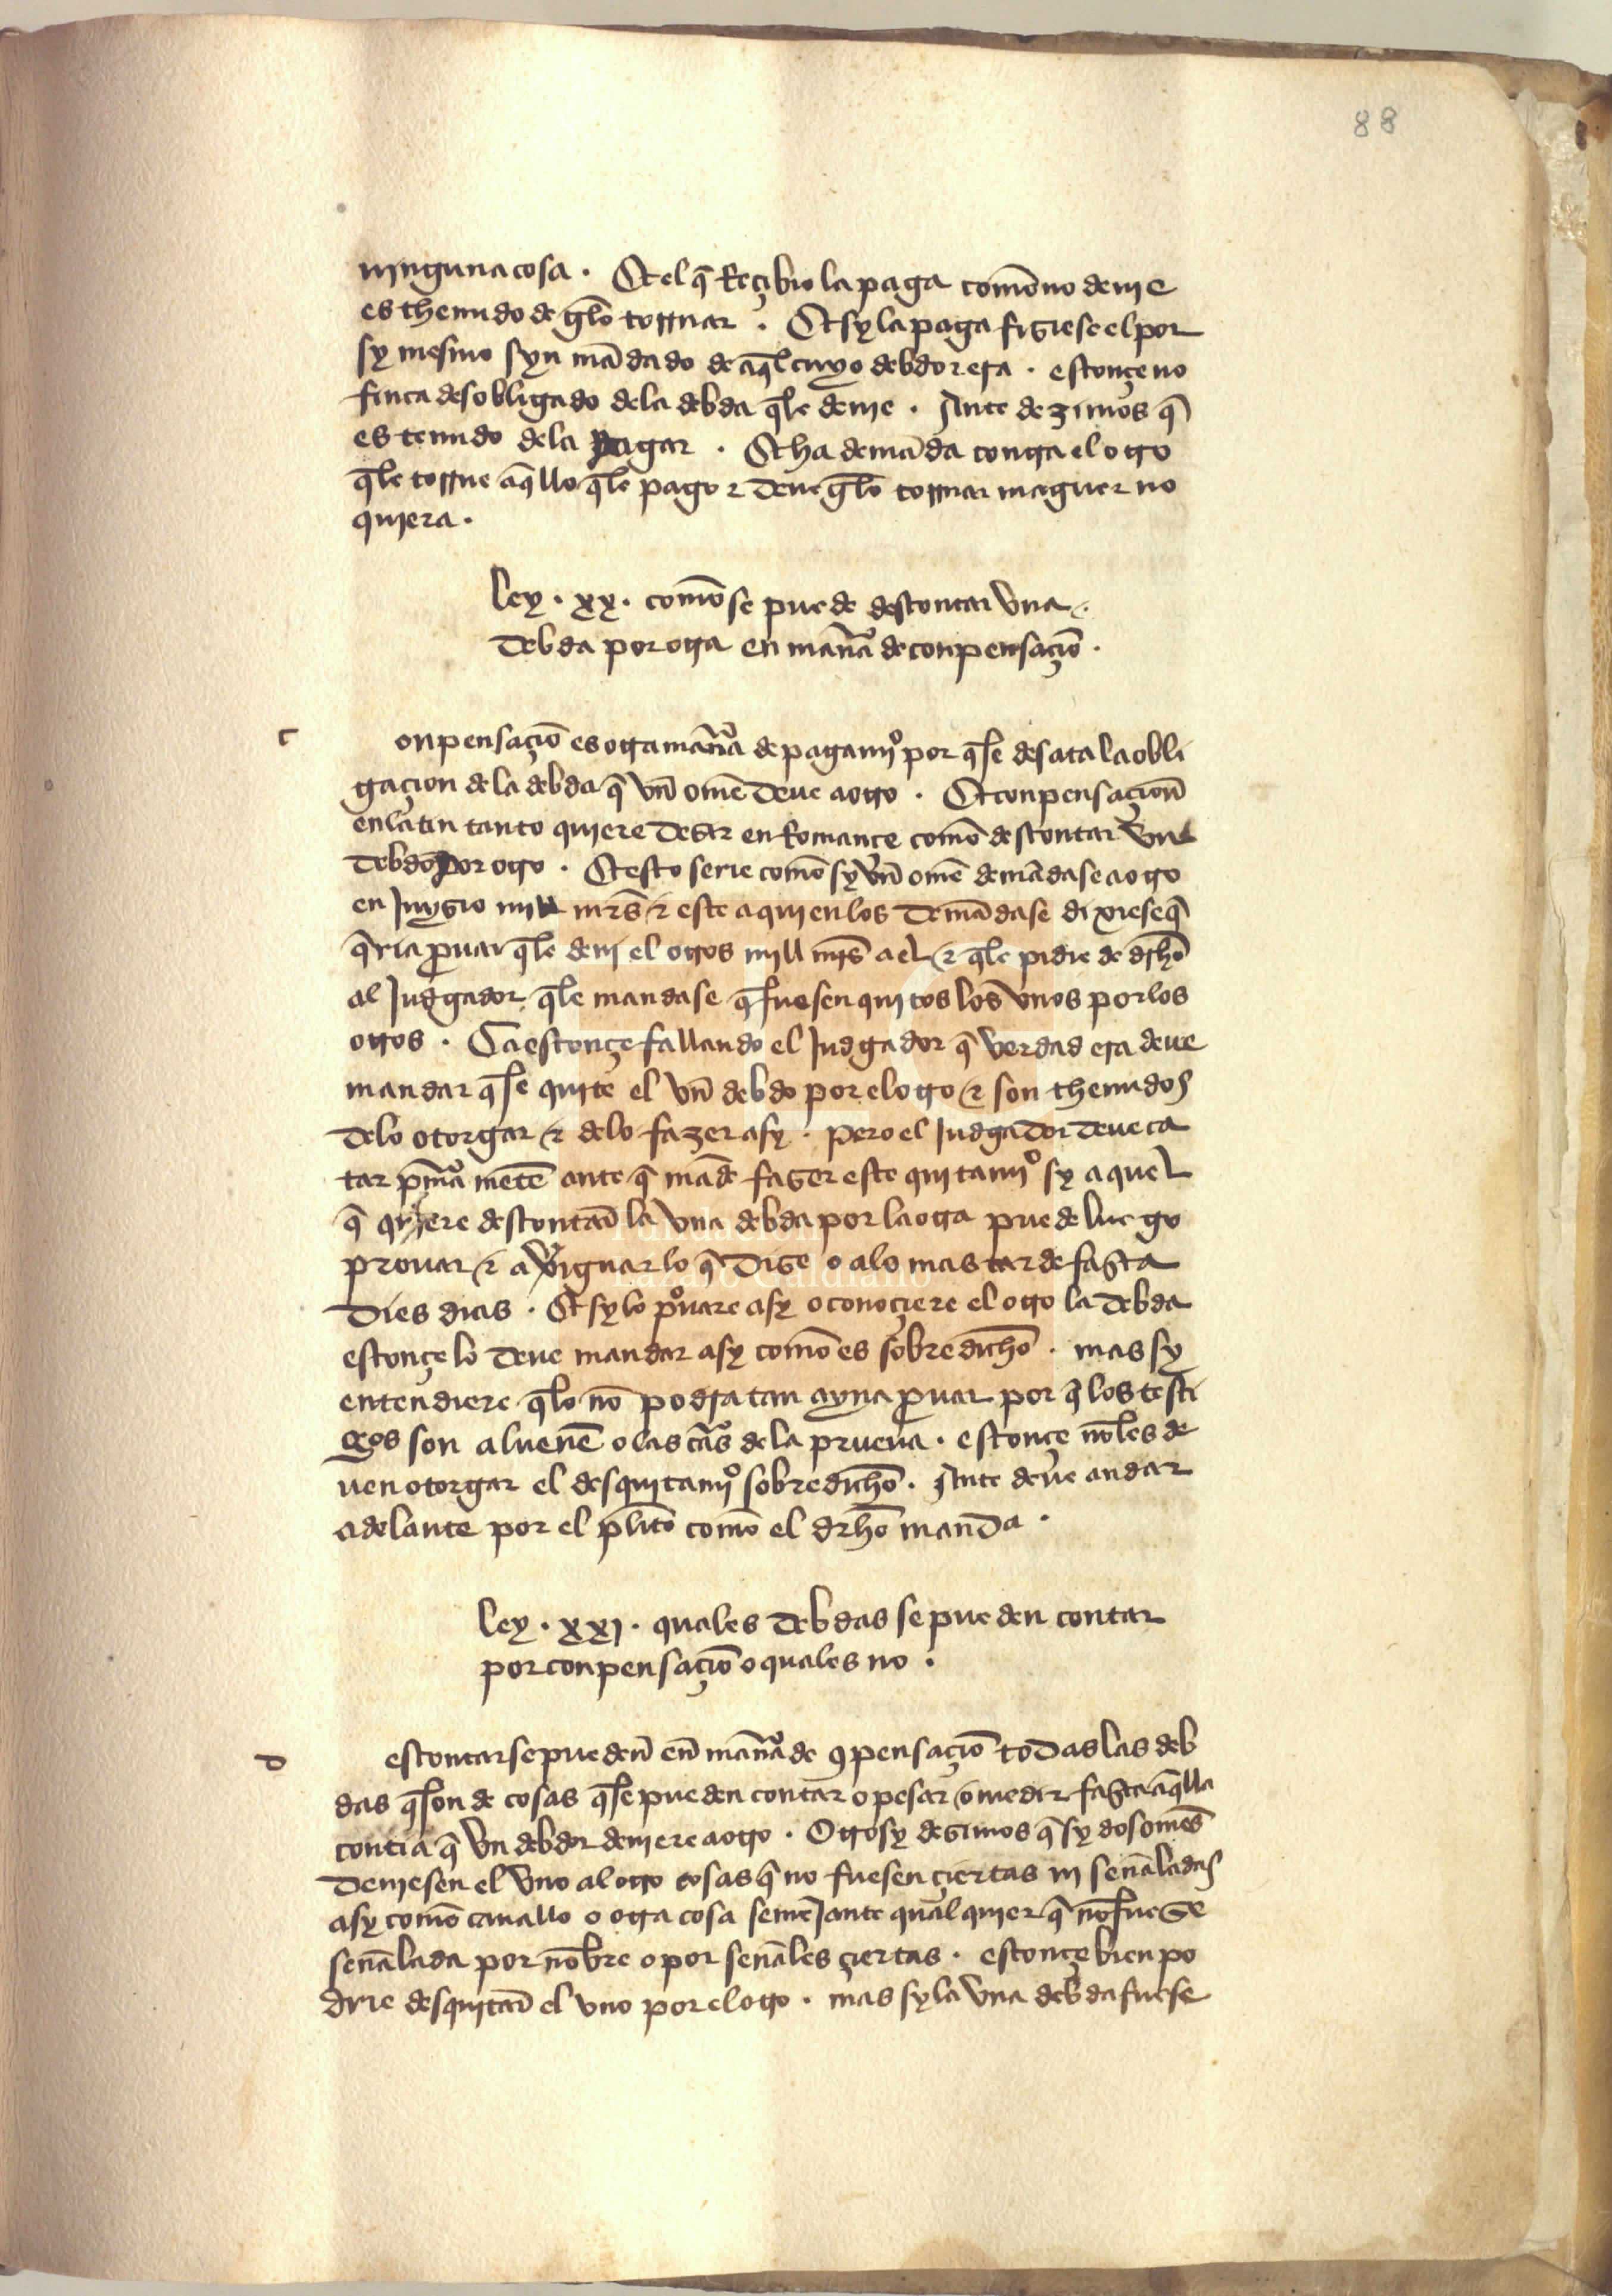 88
ninguna cosa . Et el q̃ Reçibio la paga comõ no deuie
es thenudo de gelõ tornar . Et sy la paga fisiese el por
sy mesmo syn mãdado de aq̃l cuyo debdor era . estonçe no
finca desobligado dela debda q̃le deuie . Ante dezimos q̃
es tenudo dela pagar . Et ha demãda contra el otro
q̃le torne aq̃llo q̃le pago ⁊ deue gelõ tornar maguer no
quiera .
Ley . xx . comõ se puede descontar vna
debda por otra en manr̃a de conpensaçiõ .
c
onpensaçiõ es otra manr̃a de pagamj̊ por q̃se desata la obli
gaçion dela debda q̃ vñ omẽ deue a otro . Et conpensaçioñ
en latin tanto quiere desir en Romançe comõ descontar vn
debdo por otro . Et esto serie comõ sy vñ omẽ demãdase a otro
en Juysio mill mr̃s ⁊ este a quien los demãdase dixiese q̃
q̃ria prouar q̃le deuj el otros mill mr̃s a el ⁊ q̃le pidie de drhõ
al Judgador q̃le mandase q̃ fuesen quitos los vnos por los
otros . Ca estonçe fallando el Judgador q̃ verdad era deue
mandar q̃se quite el vñ debdo por el otro ⁊ son thenudos
delo otorgar ⁊ delo fazer asy . pero el Judgador deue ca
tar prim̃a mẽte ante q̃ mãde faser este quitamj̊ sy aquel
q̃ quiere descontar̃ la vna debda por la otra puede luego
prouar ⁊ aũiguar lo q̃ dise o alo mas tarde fasta
dies dias . Et sy lo p̊uare asy o conoçiere el otro la debda
estonçe lo deue mandar asy comõ es sobre dichõ . mas sy
entendiere q̃lo nõ podra tan ayna prouar por q̃ los testi
gos son a luenẽ o las cãs dela prueua . estonçe nõ les de
uen otorgar el desquitamj̊ sobre dichõ . Ante deue andar
adelante por el plitõ comõ el drhõ manda .
Ley . xxj . quales debdas se pueden contar
por conpensaçiõ o quales no .
d
escontar se puedeñ eñ manr̃a de 9pensaçiõ todas las deb
das q̃son de cosas q̃se pueden contar o pesar o medir fasta aq̃lla
contia q̃ vn debdor deuiere a otro . Otrosy desimos q̃ sy dos omẽs
deuiesen el vno al otro cosas q̃ no fuesen çiertas nj señaladas
asy comõ cauallo o otra cosa semeJante qual quier q̃ nõ fuese
señalada por nõbre o por señales çiertas . estonçe bien po
drie desquitar̃ el vno por el otro . mas sy la vna debda fuese
Fundación
Lázaro Galdiano